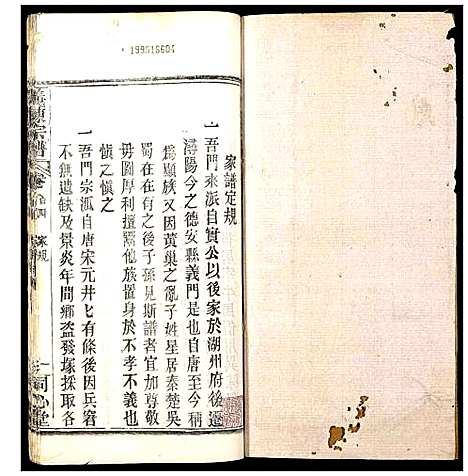 199515604
家譜定規
一吾門來派自實公以後家於湖州府後遷
潯陽今之德安縣義門是也自唐至今稱
爲顯族又因黃巢之亂子姓星居秦楚吳
蜀在在有之後子孫見斯譜者宜加尊敬
毋圖厚利擅隱他族置身於不孝不義也
慎之慎之
一吾門宗派自唐宋元井匕有條後因兵窖
不無遺缺及景炎年間鄉盜發塚採取各
宗譜
家規